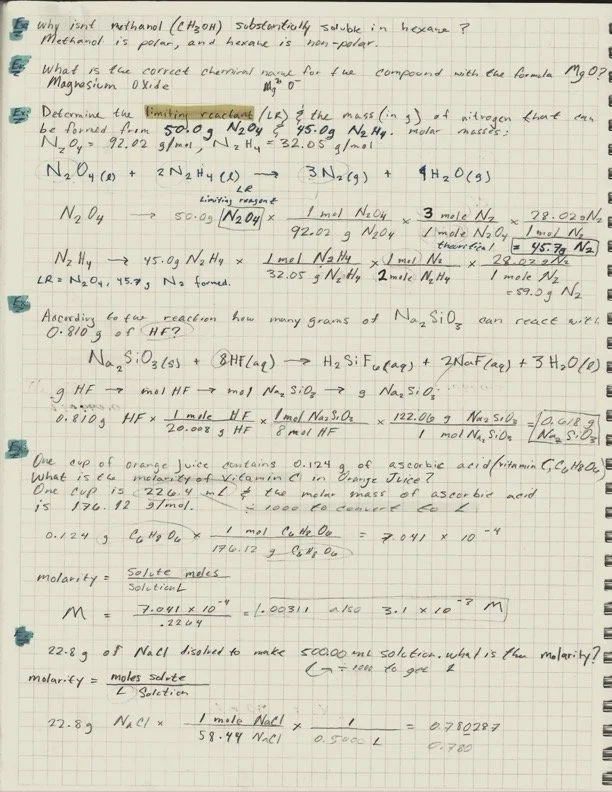 Ex why isnt methanol (CH3OH) substantially soluble in hexane?
Methanol is polar, and hexane is non-polar.
Ex What is the correct chemical name for the compound with the formula MgO?
Magnasium Oxide Mg²⁺ O⁻
Ex Determine the limiting reactant (LR) & the mass (in g) of nitrogen that can
be formed from 50.0g N2O4 & 45.0g N2H4. molar masses:
N2O4 = 92.02 g/mol, N2H4 = 32.05 g/mol
N2O4(l) + 2N2H4(l) → 3N2(g) + 4H2O(g)
LR
Limiting reagent
N2O4 → 50.0g N2O4 × 1 mol N2O4 / 92.02 g N2O4 × 3 mole N2 / 1 mole N2O4 × 28.02g N2 / 1 mol N2
theoretical = 45.7g N2
N2H4 → 45.0g N2H4 × 1 mol N2H4 / 32.05 g N2H4 × 1 mol N2 / 2 mole N2H4 × 28.02 g N2 / 1 mole N2
LR = N2O4, 45.7g N2 formed. = 59.0g N2
Ex According to the reaction how many grams of Na2SiO3 can react with
0.810g of HF?
Na2SiO3(s) + 8HF(aq) → H2SiF6(aq) + 2NaF(aq) + 3H2O(l)
g HF → mol HF → mol Na2SiO3 → g Na2SiO3
0.810g HF × 1 mole HF / 20.008 g HF × 1 mol Na2SiO3 / 8 mol HF × 122.06 g Na2SiO3 / 1 mol Na2SiO3 = 0.618 g Na2SiO3
Ex
One cup of orange juice contains 0.124 g of ascorbic acid (vitamin C, C6H8O6)
What is the molarity of Vitamin C in Orange Juice?
One cup is 226.4 mL & the molar mass of ascorbic acid
is 176.12 g/mol. ÷ 1000 to convert to L
0.124 g C6H8O6 × 1 mol C6H8O6 / 176.12 g C6H8O6 = 7.041 × 10⁻⁴
molarity = Solute moles / Solution L
M = 7.041 × 10⁻⁴ / .2264 = .00311 also 3.1 × 10⁻³ M
Ex
22.8g of NaCl disolved to make 500.00 mL solution. what is the molarity?
÷ 1000 to get L
molarity = moles solute / L Solution
22.8g NaCl × 1 mole NaCl / 58.44 NaCl × 1 / 0.5000 L = 0.780287
0.780